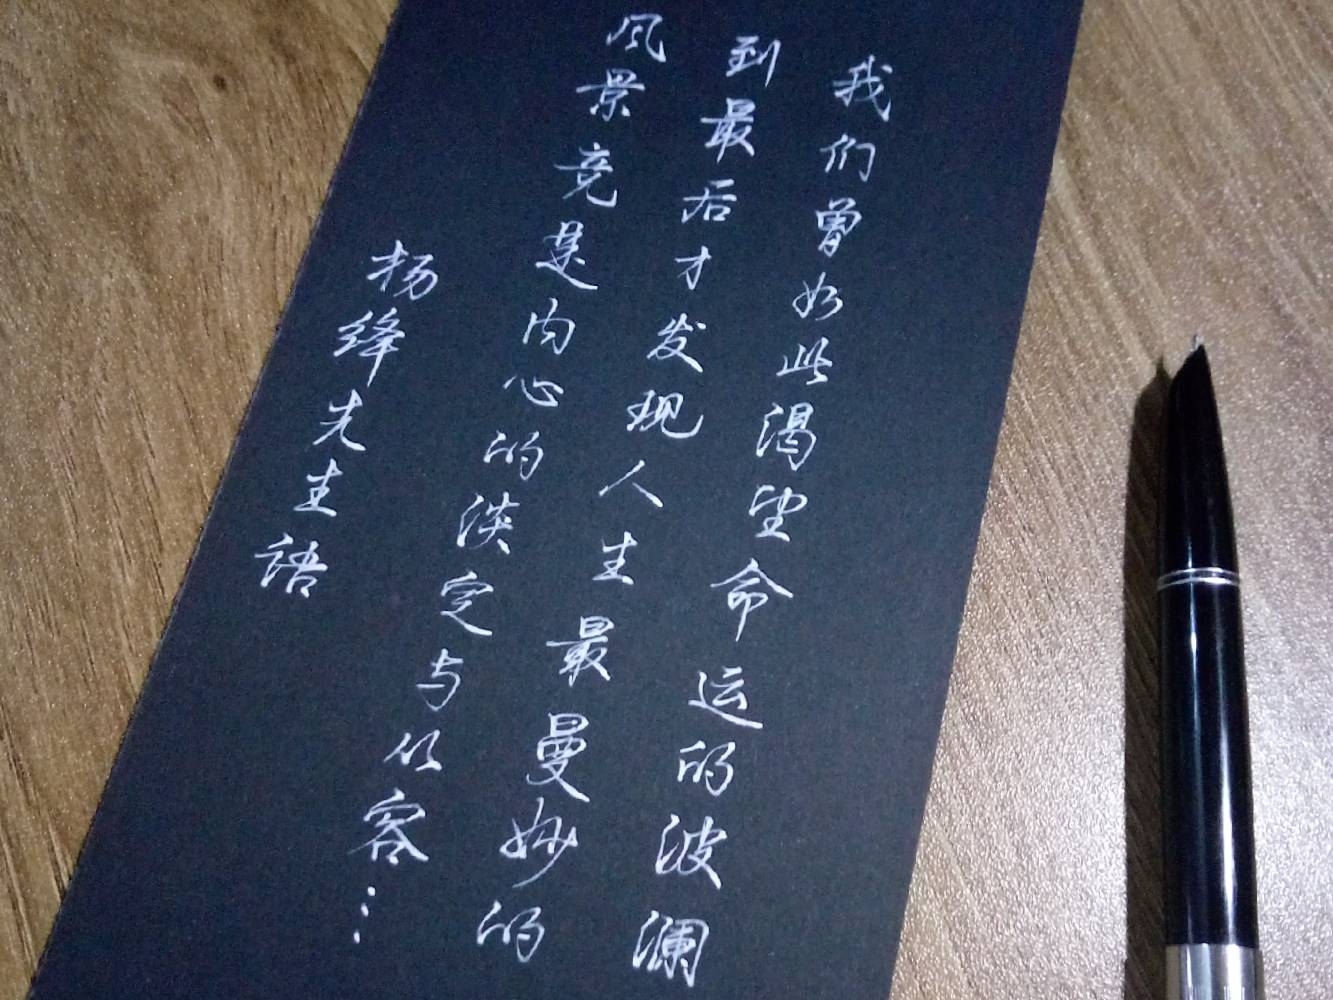 我们曾如此渴望命运的波澜
到最后才发现人生最曼妙的
风景竞是内心的淡定与从容…
杨绛先生语